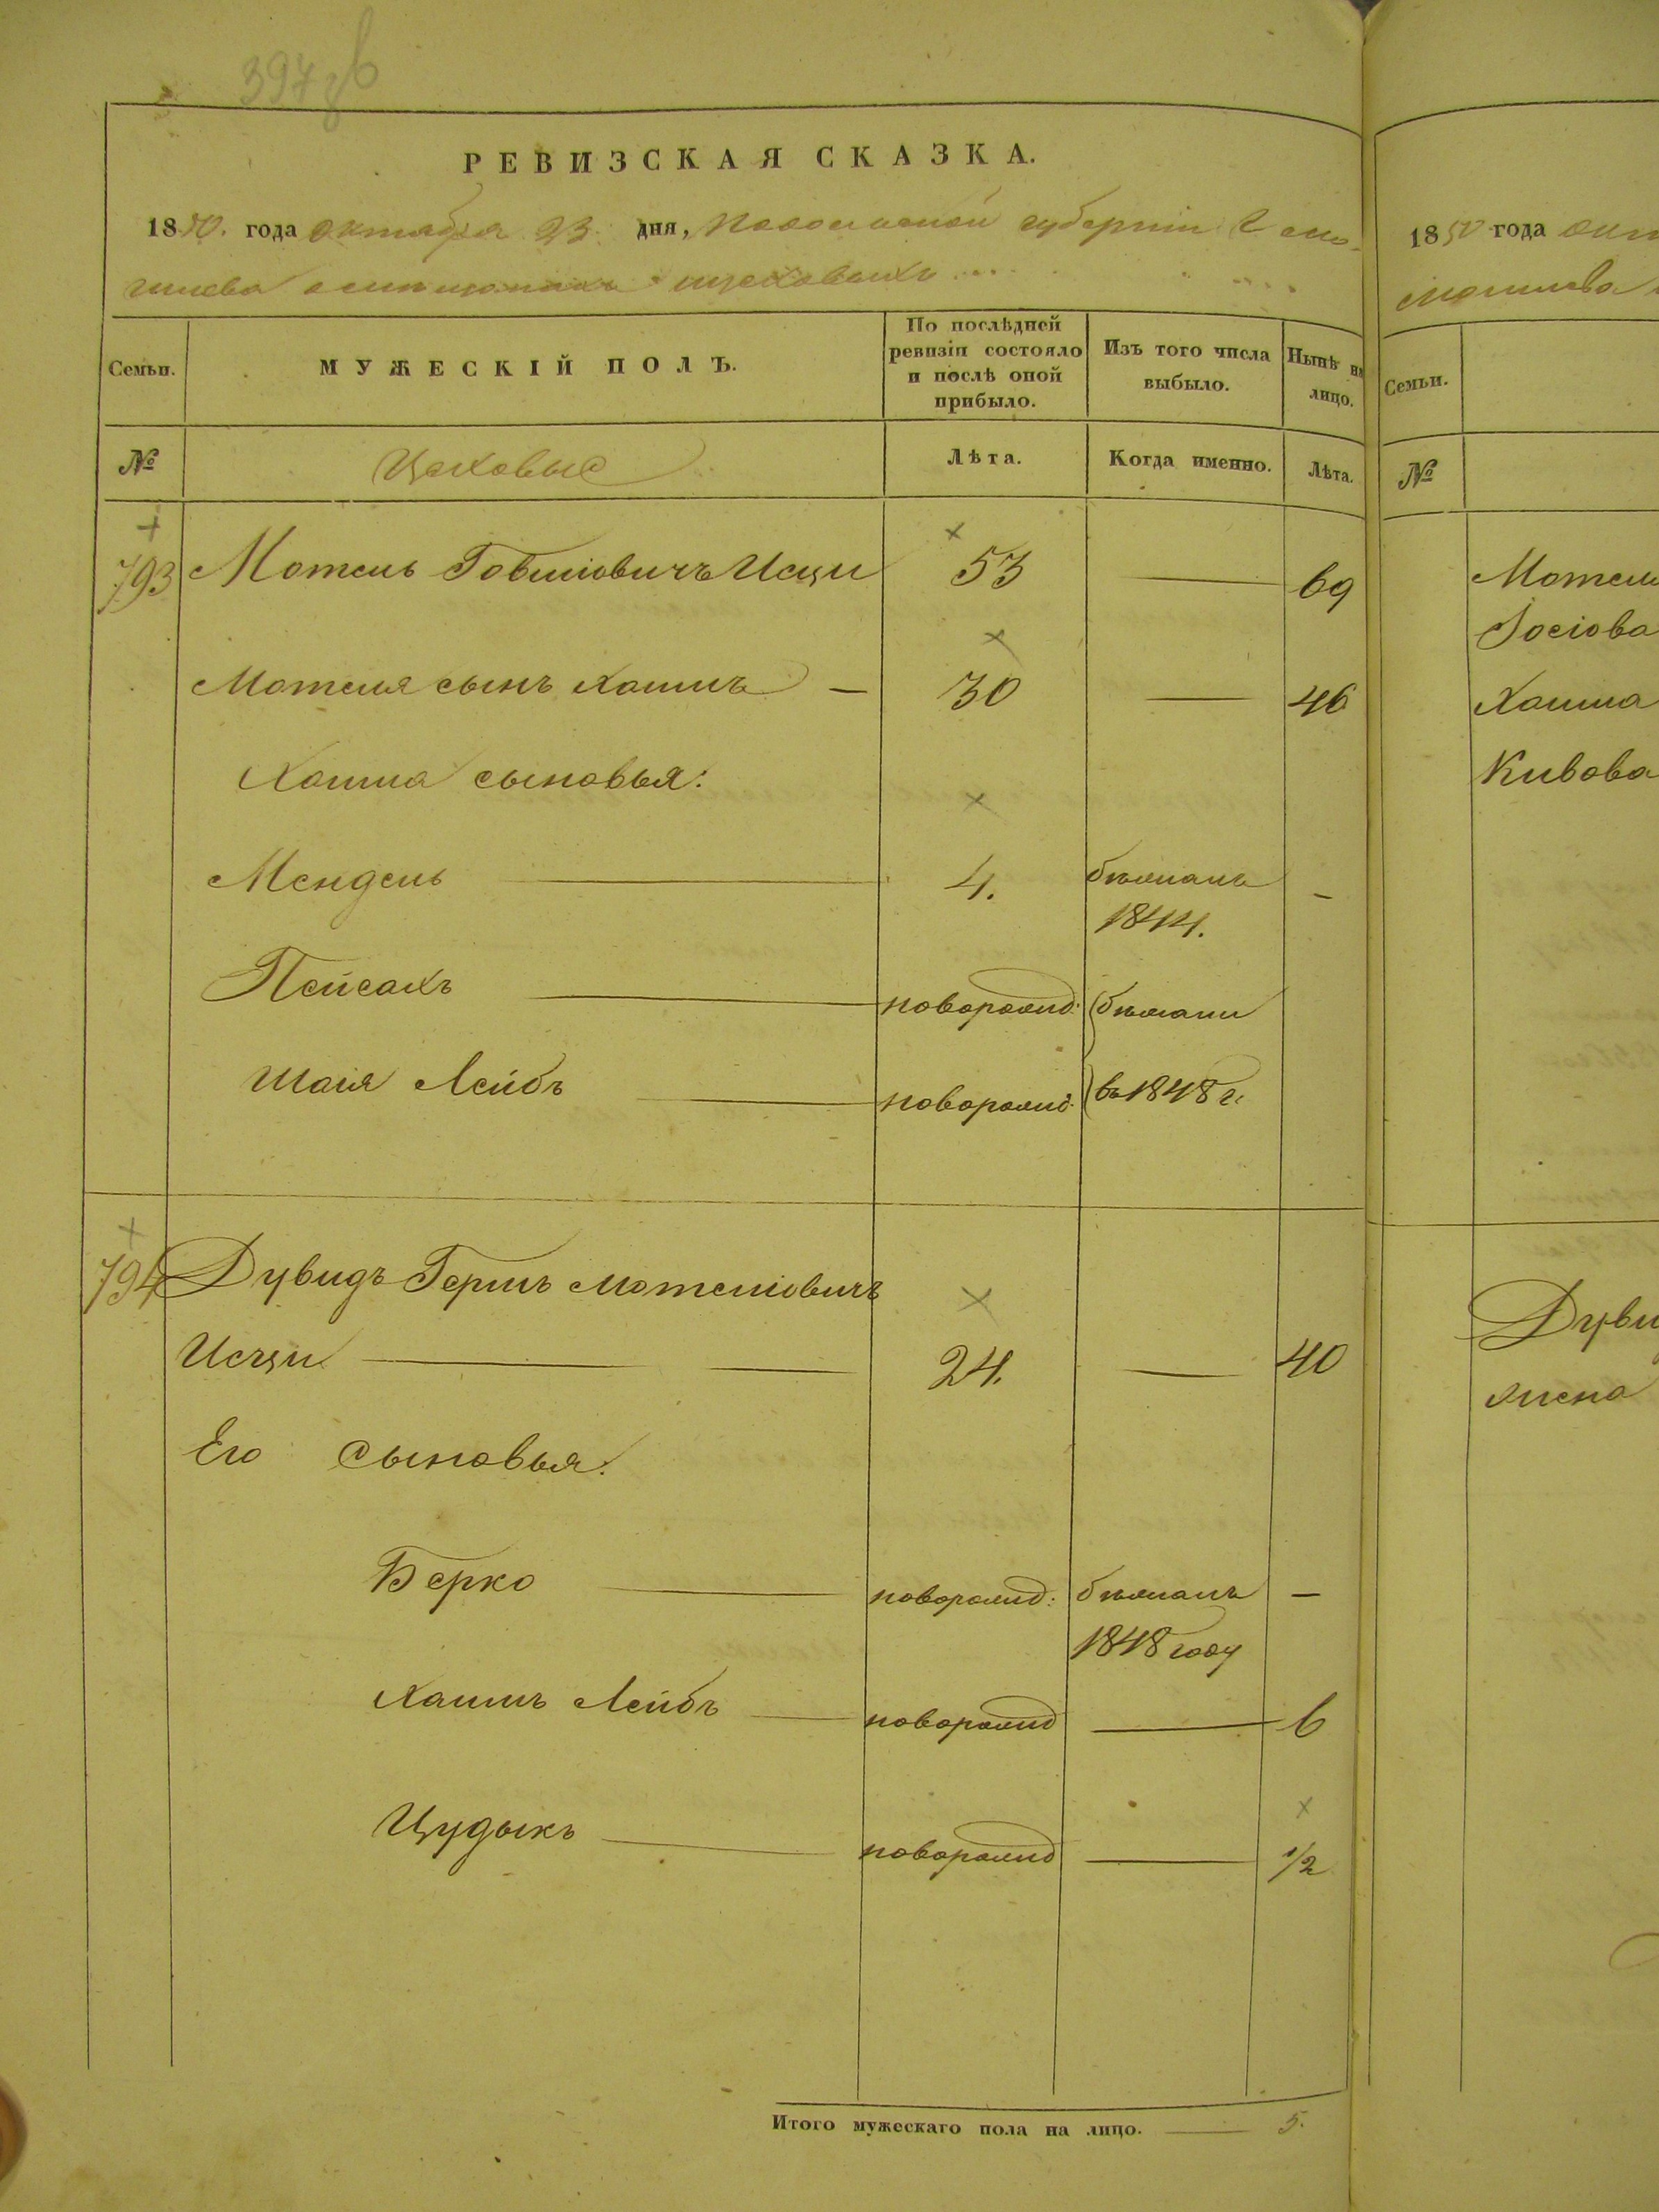 397 об
РЕВИЗСКАЯ СКАЗКА.
1850. года октября 23. дня, Подольской губерніи Г. Мо-
гилева о цеховыхъ
Семьи.
МУЖЕСКІЙ ПОЛЪ.
По послѣдней ревизіи состояло и послѣ оной прибыло.
Изъ того числа выбыло.
Нынѣ на лицо.
№
Цеховые
Лѣта.
Когда именно.
Лѣта.
793 Мотель Говшіовичъ 53 — 69
Мотеля сынъ Хаимъ — 30 — 46
Хаима сыновья:
Мендель — 4. бѣжалъ —
1844.
Пейсахъ — новорожд: бѣжали
Шаія Лейбъ — новорожд. въ 1848 г.
794 Дувидъ Гершъ Мотеліовичъ
24. — 40
Его сыновья:
Берко — новорожд: бѣжалъ —
1848 году
Хаимъ Лейбъ — новорожд — 6
Цудыкъ — новорожд — 1/2
Итого мужескаго пола на лицо. — 5.
1850 года
Могилева
Семьи.
№
Іосіова
Хаима
Кивова
жена